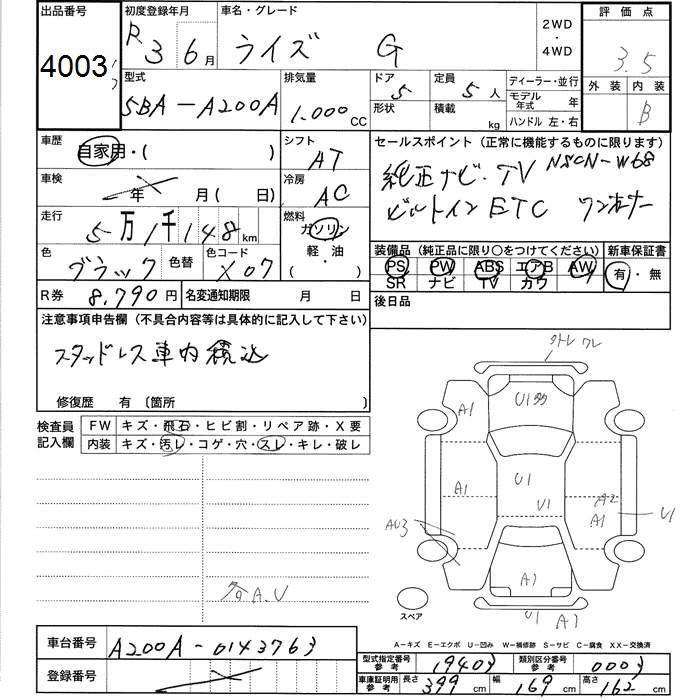 出品番号 4003
初度登録年月 R 3 6月
車名・グレード ライズ G
2WD・4WD
評価点 3.5
外装 内装 B
型式 5BA-A200A
排気量 1.000 CC
ドア 5
形状
定員 5人
積載 kg
ディーラー・並行
モデル年式 年
ハンドル 左・右
車歴 自家用・( )
シフト AT
セールスポイント(正常に機能するものに限ります)
純正ナビ・TV NSCN-W68
ビルトインETC ワンオーナー
車検 年 月( 日)
冷房 AC
走行 5万1千148km
燃料 ガソリン・軽油・( )
色 ブラック
色替
色コード X07
装備品(純正品に限り〇をつけてください)
PS PW ABS エアB AW
SR ナビ TV カワ
新車保証書 有・無
R券 8,790円
名変通知期限 月 日
後日品
注意事項申告欄(不具合内容等は具体的に記入して下さい)
スタッドレス車内積込
修復歴 有〔箇所 〕
検査員記入欄
FW キズ・飛石・ヒビ割・リペア跡・X要
内装 キズ・汚レ・コゲ・穴・スレ・キレ・破レ
各A.U
ワレ
A1
U1
A1
U1
U1
A2
A1
U1
AU3
A1
U1 A1
スペア
A-キズ E-エクボ U-凹み W-補修跡 S-サビ C-腐食 XX-交換済
車台番号 A200A-0143763
登録番号
型式指定番号 参考 19403
類別区分番号 参考 0003
車庫証明用 参考 長さ 399 cm 幅 169 cm 高さ 162 cm